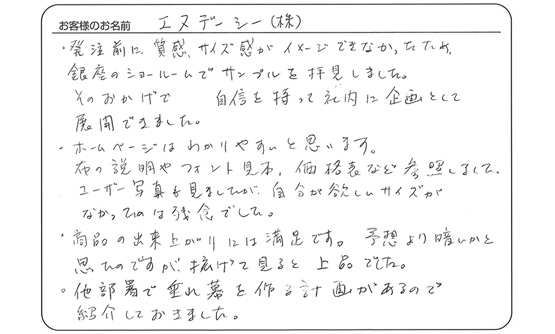 お客様のお名前 エヌデーシー(株)
・発注前に、質感、サイズ感がイメージできなかったため、
銀座のショールームでサンプルを拝見しました。
そのおかげで 自信を持って社内に企画として
展開できました。
・ホームページはわかりやすいと思います。
布の説明やフォント見本、価格表など参照しまして、
ユーザー写真も見ましたが、自分が欲しいサイズが
なかったのは残念でした。
・商品の出来上がりには満足です。予想より暗いかと
思ったのですが、拡げて見ると上品でした。
・他部署で垂れ幕を作る計画があるので
紹介しておきました。